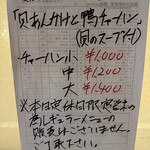 「貝あんかけと鴨チャーハン」
(貝のスープ付)
チャーハン小 ¥1,000
中 ¥1,200
大 ¥1,400
※本日定休日限定の
為レギュラーメニューの
販売はございません。
ご了承下さい。